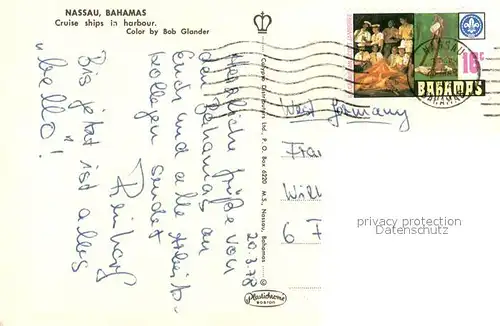 NASSAU, BAHAMAS
Cruise ships in harbour.
Color by Bob Glander
20.3.78
Herzliche Grüße von
den Bahamas an
Euch und alle Arbeit-
kollegen sendet
Reinhard
Bis jetzt ist alles
"bello"!
Calypso Distributors Ltd., P.O. Box 6220 M.S., Nassau, Bahamas
Plastichrome
BOSTON
NASSAU
BAHAMAS
16c
BAHAMAS
West Germany
Frau
6 F
privacy protection
Datenschutz